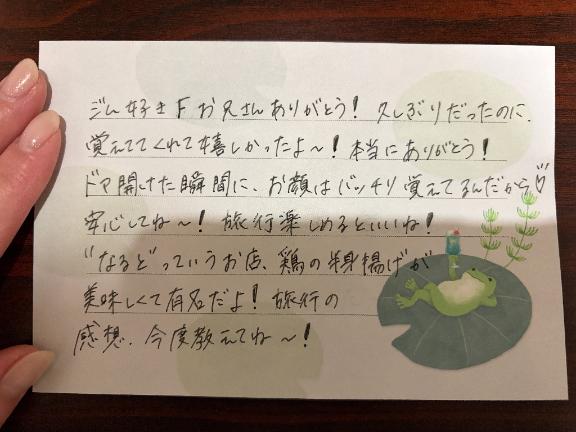 ジム好き F お兄さんありがとう！ 久しぶりだったのに、
覚えててくれて嬉しかったよ〜！ 本当にありがとう！
ドア開けた瞬間に、お顔はバッチリ覚えてるんだから♡
安心してね〜！ 旅行楽しめるといいね！
"なると"っていうお店、鶏の半身揚げが
美味しくて有名だよ！ 旅行の
感想、今度教えてね〜！